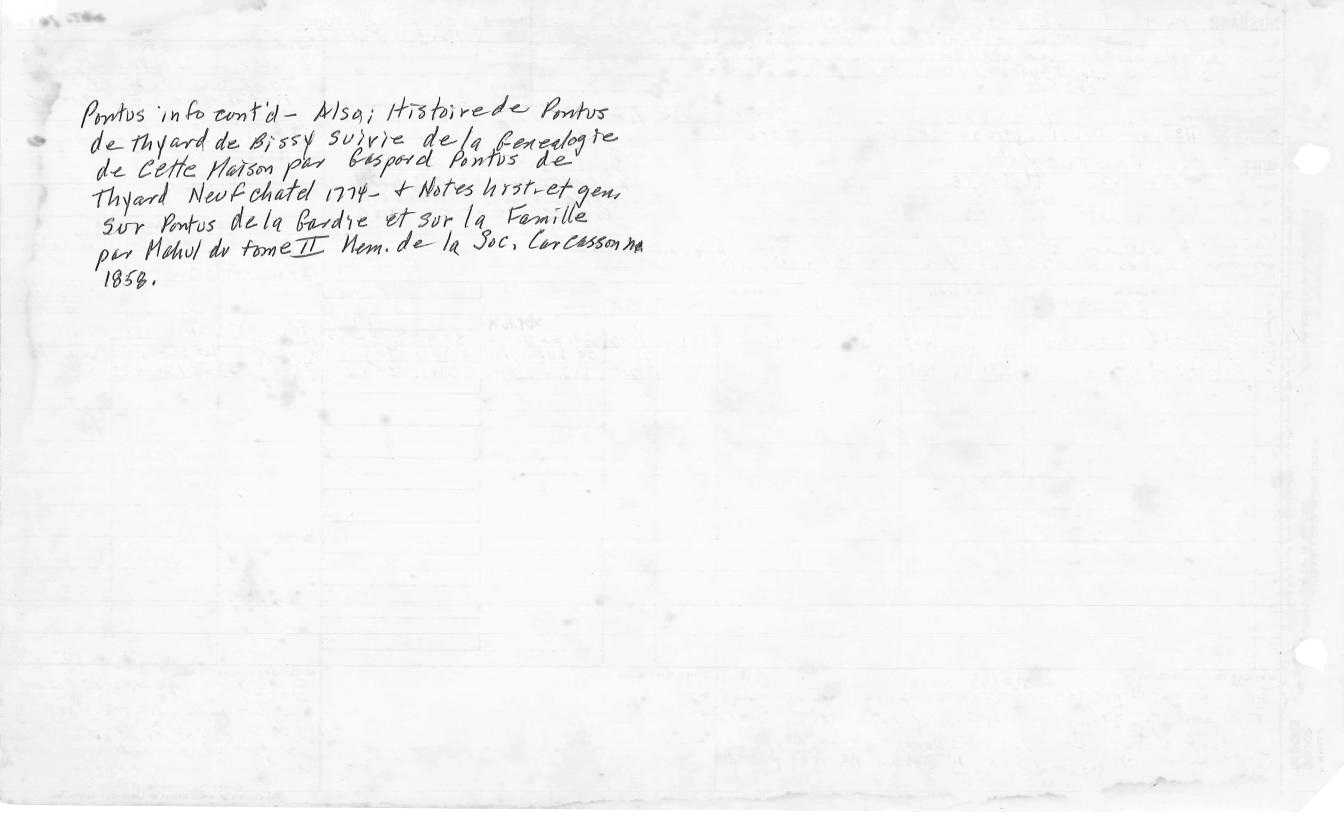 Pontus info cont'd - Also; Histoire de Pontus
de Thyard de Bissy Suivie de la Genealogie
de Cette Maison par Gaspard Pontus de
Thyard Neufchatel 1774 - + Notes hist. et gen.
Sur Pontus de la Gardie et sur la Famille
par Mahul du tome II Mem. de la Soc. Carcassonne
1858.